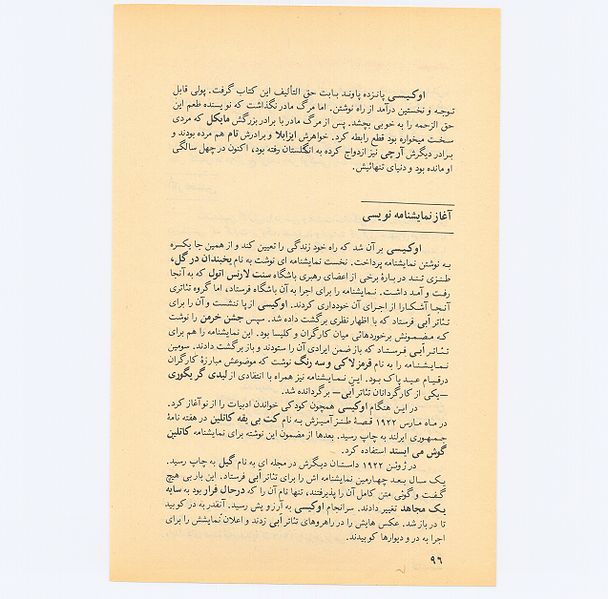 اوکیسی پانزده پاوند بابت حق التألیف این کتاب گرفت. پولی قابل
توجه و نخستین درآمد از راه نوشتن. اما مرگ مادر نگذاشت که نویسنده طعم این
حق الزحمه را به خوبی بچشد. پس از مرگ مادر با برادر بزرگش مایکل که مردی
سخت میخواره بود قطع رابطه کرد. خواهرش ایزابلا و برادرش تام هم مرده بودند و
برادر دیگرش آرچی نیز ازدواج کرده به انگلستان رفته بود، اکنون در چهل سالگی
او مانده بود و دنیای تنهائیش.
آغاز نمایشنامه نویسی
اوکیسی بر آن شد که راه خود زندگی را تعیین کند و از همین جا یکسره
به نوشتن نمایشنامه پرداخت. نخست نمایشنامه ای نوشت به نام یخبندان در گل،
طنزی تند در بارهٔ برخی از اعضای رهبری باشگاه سنت لارنس اتول که به آنجا
رفت و آمد داشت. نمایشنامه را برای اجرا به آن باشگاه فرستاد، اما گروه تئاتری
آنجا آشکارا از اجرای آن خودداری کردند. اوکیسی از پا ننشست و آن را برای
تئاتر أبی فرستاد که با اظهار نظری برگشت داده شد. سپس جشن خرمن را نوشت
که مضمونش برخوردهائی میان کارگران و کلیسا بود. این نمایشنامه را هم برای
تئاتر أبی فرستاد که باز ضمن ایرادی آن را ستودند و باز برگشت دادند. سومین
نمایشنامه را به نام قرمز لاکی و سه رنگ نوشت که موضوعش مبارزهٔ کارگران
درقیام عید پاک بود. این نمایشنامه نیز همراه با انتقادی از لیدی گریگوری
—یکی از کارگردانان تئاتر أبی— برگردانده شد.
در این هنگام اوکیسی همچون کودکی خواندن ادبیات را از نو آغاز کرد.
در ماه مارس ۱۹۲۲ قصهٔ طنز آمیزش به نام کت بی یقه کاتلین در هفته نامهٔ
جمهوری ایرلند به چاپ رسید. بعدها از مضمون این نوشته برای نمایشنامه کاتلین
گوش می ایستد استفاده کرد.
در ژوئن ۱۹۲۲ داستان دیگرش در مجله ای به نام گیل به چاپ رسید.
یک سال بعد چهارمین نمایشنامه اش را برای تئاتر أبی فرستاد. این بار بی هیچ
گفت و گوئی متن کامل آن را پذیرفتند، تنها نام آن را که درحال فرار بود به سایه
یک مجاهد تغییر دادند. سرانجام اوکیسی به آرزویش رسید. آنقدر به در کوبید
تا در باز شد. عکس هایش را در راهروهای تئاتر أبی زدند و اعلان نمایشش را برای
اجرا به در و دیوارها کوبیدند.
۹۶